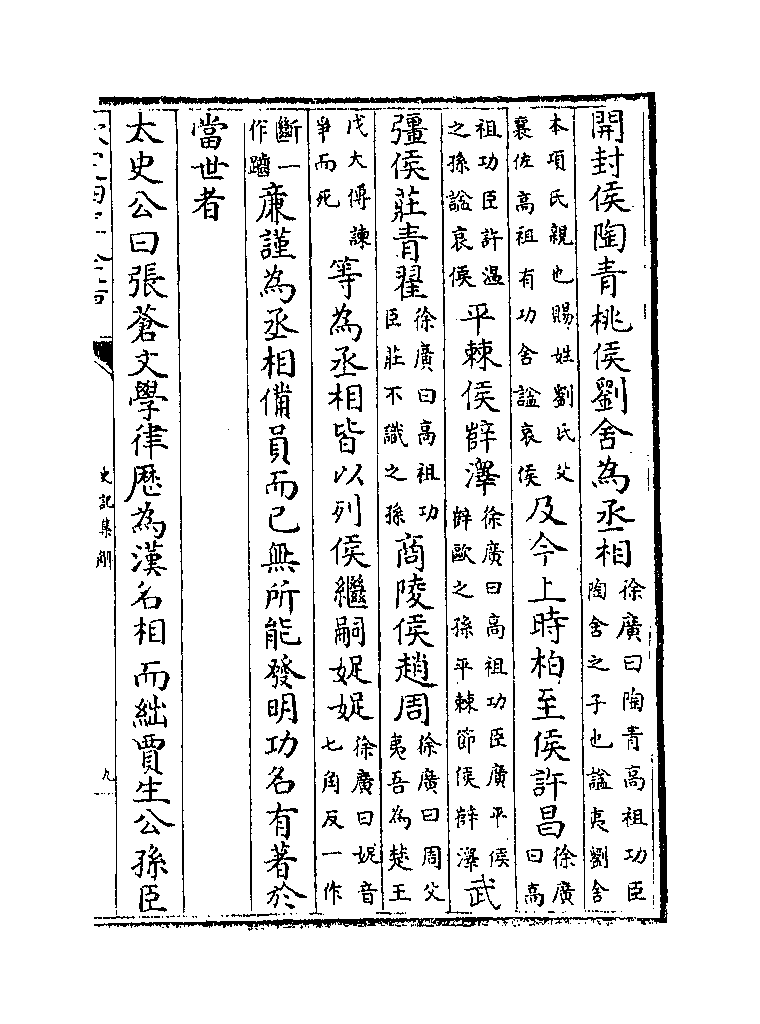 開封侯陶青桃侯劉舍為丞相徐廣曰陶青高祖功臣陶舍之子也諡夷劉舍
本項氏親也賜姓劉氏父襄佐高祖有功舍諡哀侯及今上時柏至侯許昌徐廣曰高
祖功臣許溫之孫諡哀侯平棘侯薛澤徐廣曰高祖功臣廣平侯薛歐之孫平棘節侯薛澤武
彊侯莊青翟徐廣曰高祖功臣莊不識之孫商陵侯趙周徐廣曰周父夷吾為楚王
戊大傅諫爭而死等為丞相皆以列侯繼嗣娖娖徐廣曰娖音七角反一作
斷一作躖廉謹為丞相備員而已無所能發明功名有著於
當世者
太史公曰張蒼文學律歷為漢名相而絀賈生公孫臣
史記集解
九